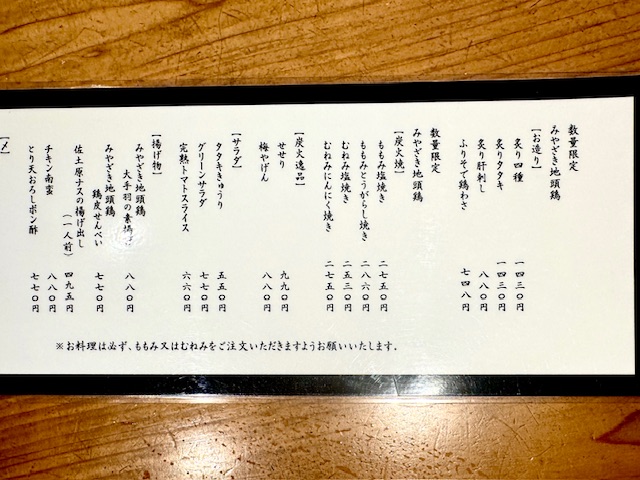 数量限定
みやざき地頭鶏
【お造り】
炙り四種 一四三〇円
炙りタタキ 一四三〇円
炙り肝刺し 八八〇円
ふりそで鶏わさ 七四八円
数量限定
みやざき地頭鶏
【炭火焼】
ももみ塩焼き 二七五〇円
ももみとうがらし焼き 二八六〇円
むねみ塩焼き 二五三〇円
むねみにんにく焼き 二七五〇円
【炭火逸品】
せせり 九九〇円
梅やげん 八八〇円
【サラダ】
タタキきゅうり 五五〇円
グリーンサラダ 七七〇円
完熟トマトスライス 六六〇円
【揚げ物】
みやざき地頭鶏
大手羽の素揚げ 八八〇円
みやざき地頭鶏
鶏皮せんべい 七七〇円
佐土原ナスの揚げ出し
(一人前) 四九五円
チキン南蛮 八八〇円
とり天おろしポン酢 七七〇円
【〆】
※お料理は必ず、ももみ又はむねみをご注文いただきますようお願いいたします。